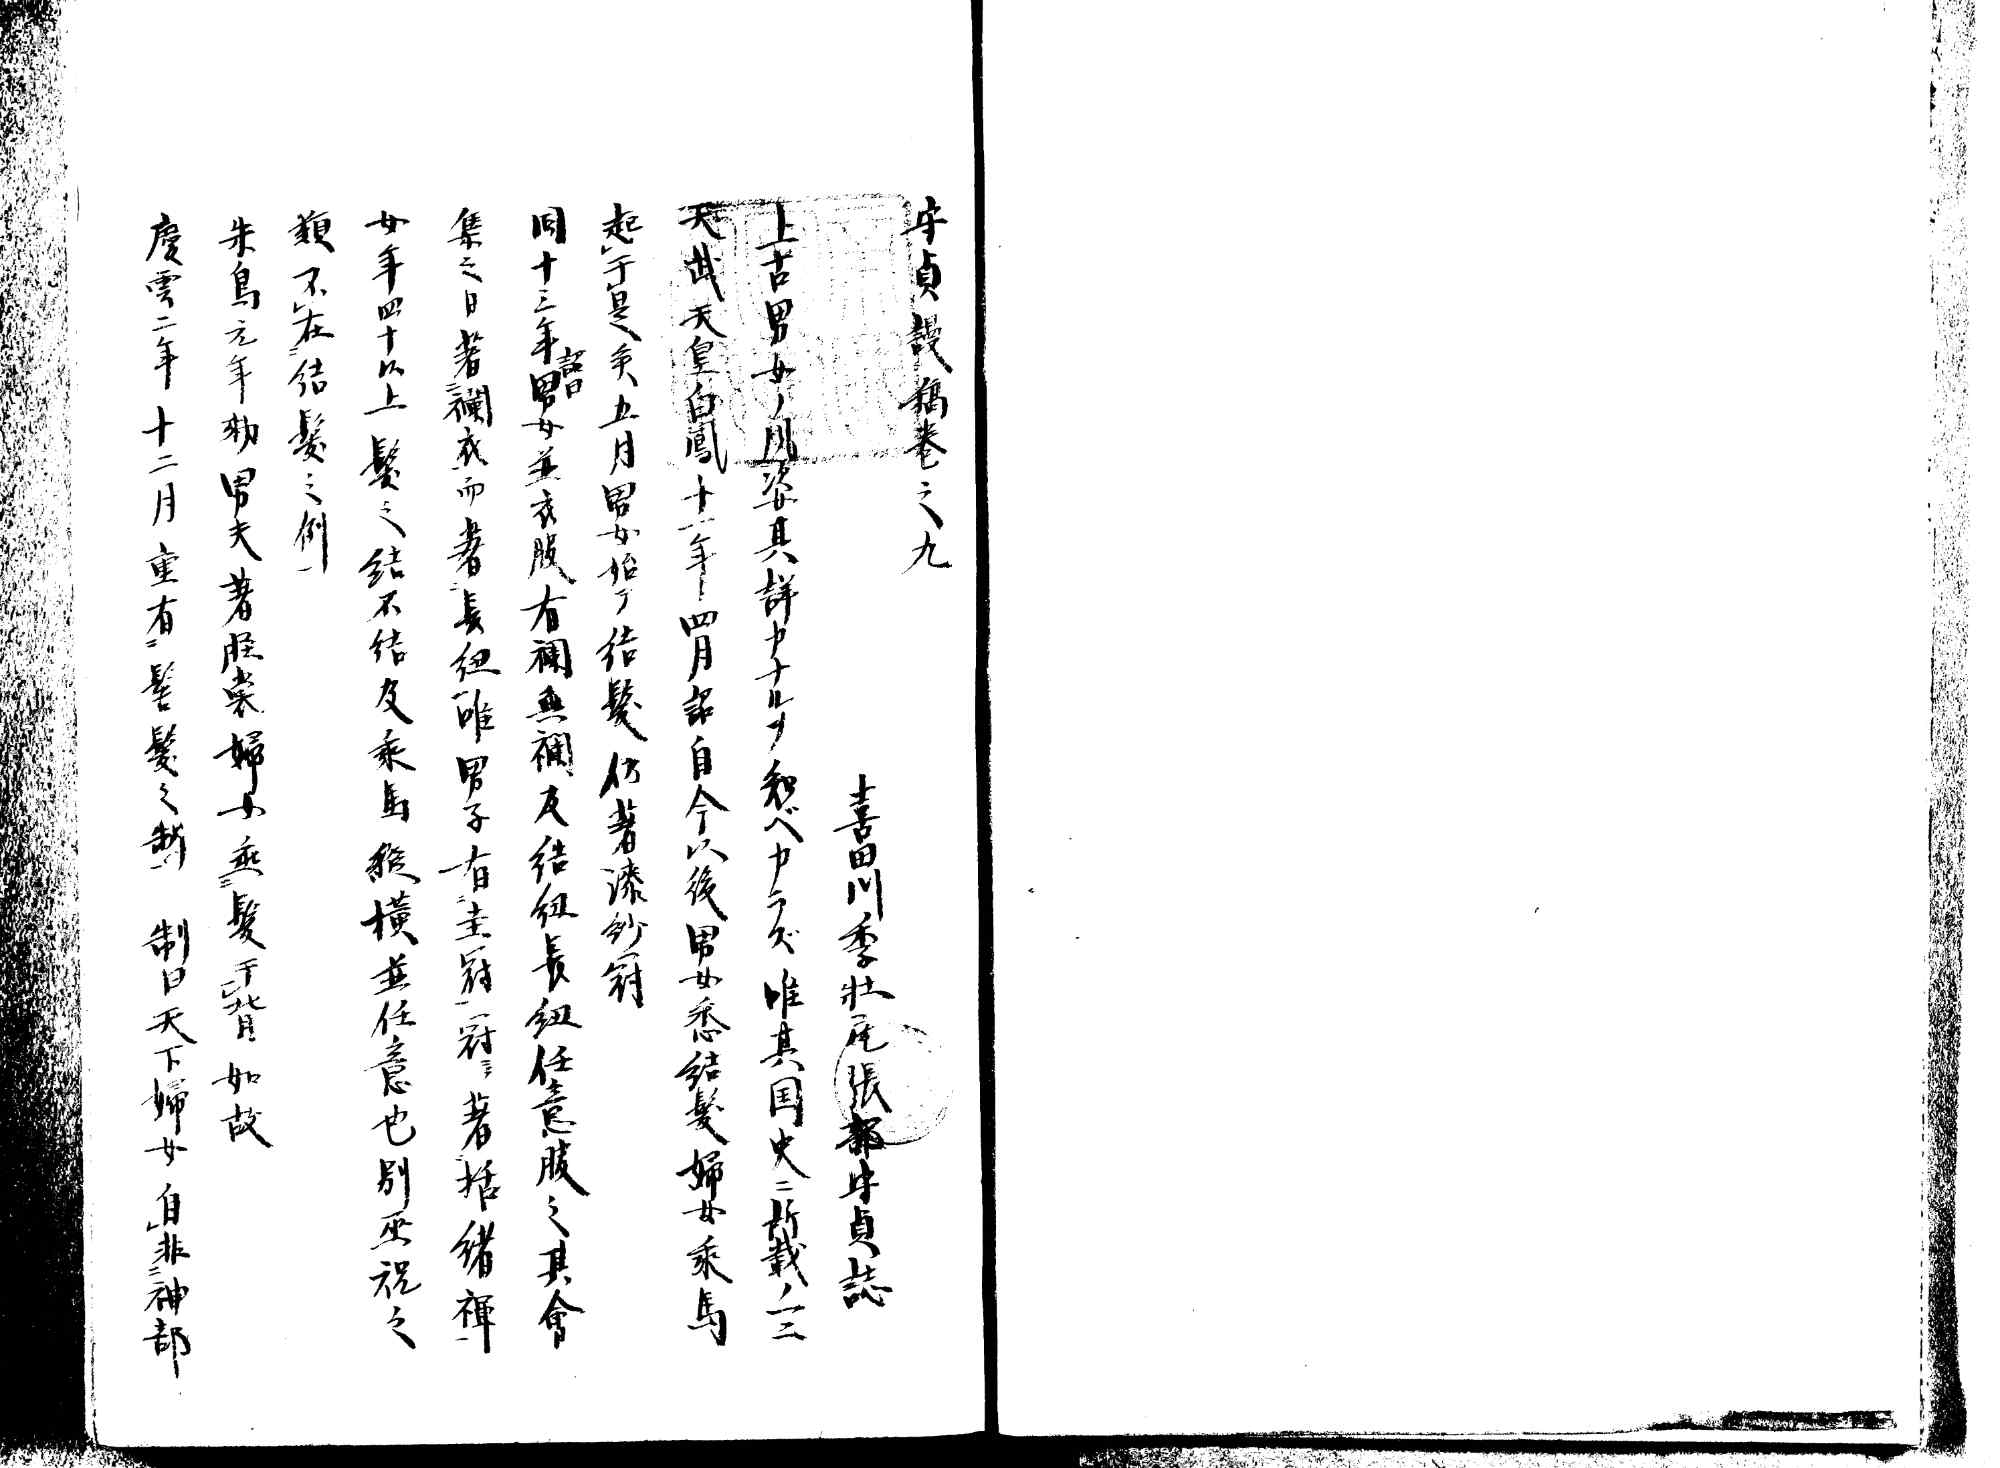 守貞謾稿巻之九
喜田川季荘尾張部守貞誌
上古男女ノ風姿其詳カナルヲ知ベカラズ唯其国史ニ所載ノ一二
天武天皇白鳳十一年四月詔自今以後男女悉結髪婦女乗馬
起于是矣五月男女始テ結髪仍著漆紗冠
同十三年詔曰男女並衣服有襴無襴及結紐長紐任意服之其會
集之日著襴衣而著長紐唯男子有圭冠冠著括緒褌
女年四十以上髪之結不結及乗馬縦横並任意也別巫祝之
類不在結髪之例
朱鳥元年勅男夫著脛裳婦女垂髪于背如故
慶雲二年十二月重有髻髪之制 制曰天下婦女自非神部